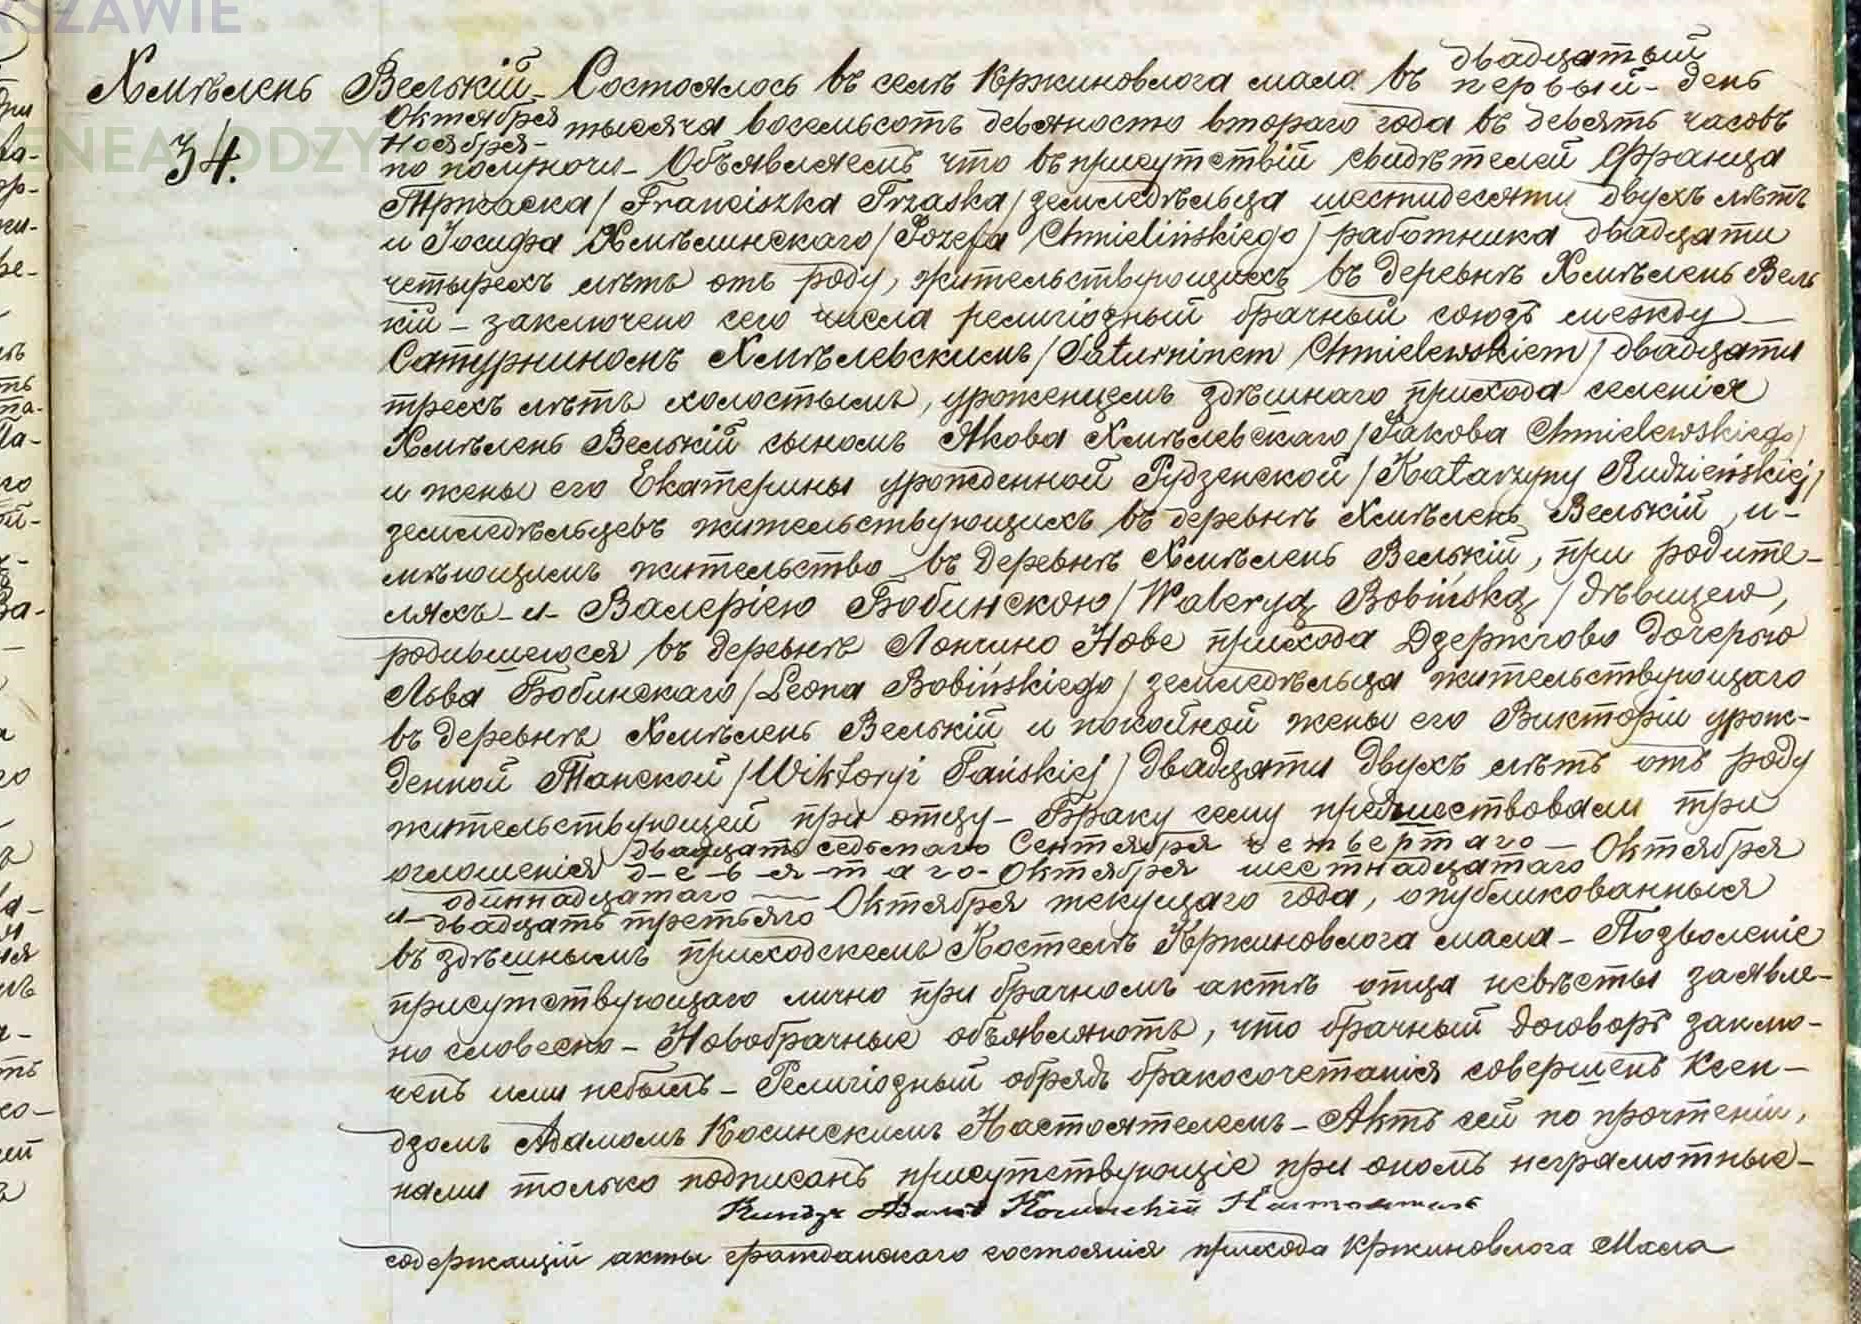 RSZAWIE
GENEALODZY
Хмѣлень Велькій
34.
Состоялось въ селѣ Кржиновлога мала въ двадцатый / первый день
Октября / Ноября тысяча восемьсотъ девяносто втораго года въ девять часовъ
по полуночи – Объявляемъ что въ присутствіи свидѣтелей Франца
Тржаска /Franciszka Trzaska/ земледѣльца шестидесяти двухъ лѣтъ
и Іосифа Хмѣлинскаго /Józefa Chmielińskiego/ работника двадцати
четырехъ лѣтъ отъ роду, жительствующихъ въ деревнѣ Хмѣлень Вель
кій – заключено сего числа религіозный брачный союзъ между –
Сатурниномъ Хмѣлевскимъ /Saturninem Chmielewskiem/ двадцати
трехъ лѣтъ холостымъ, уроженцемъ здѣшнаго прихода селенія
Хмѣлень Велькій сыномъ Якова Хмѣлевскаго /Jakóba Chmielewskiego/
и жены его Екатерины урожденной Рудзенской /Katarzyny Rudzieńskiej/
земледѣльцевъ жительствующихъ въ деревнѣ Хмѣлень Велькій, и-
мѣющимъ жительство въ деревнѣ Хмѣлень Велькій, при родите-
ляхъ – и – Валеріею Бобинскою /Waleryą Bobińską/ дѣвицею,
родившеюся въ деревнѣ Лончино Нове прихода Дзержгово дочерью
Льва Бобинскаго /Leona Bobińskiego/ земледѣльца жительствующаго
въ деревнѣ Хмѣлень Велькій и покойной жены его Викторіи урож-
денной Танской /Wiktoryi Tańskiej/ двадцати двухъ лѣтъ отъ роду
жительствующей при отцу – Браку сему предшествовали три
оглошенія двадцать седьмаго Сентября / девятаго Октября четвертаго / шестнадцатаго Октября
и одиннадцатаго / двадцать третьяго Октября текущаго года, опубликованныя
въ здѣшнымъ приходскемъ Костелѣ Кржиновлога мала – Позволеніе
присутствующаго лично при брачномъ актѣ отца невѣсты заявле-
но словесно – Новобрачные объявляютъ, что брачный договоръ заклю-
ченъ ими небылъ – Религіозный обрядъ бракосочетанія совершенъ Ксен-
дзомъ Адамомъ Косинскимъ Настоятелемъ – Актъ сей по прочтеніи,
нами только подписанъ присутствующіе при ономъ неграмотные –
Ксендзъ Адамъ Косинскій Настоятель
содержащій акты гражданскаго состоянія прихода Кржиновлога Мала